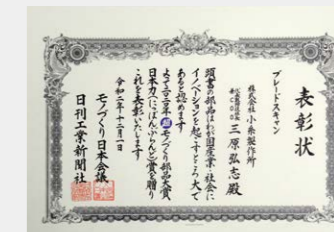 表彰状
ブレードスキャン
株式会社 小糸製作所
三原弘志 殿
頭書の部品はわが国産業・社会に
イノベーションを起すところ大で
あると認めます
よって二〇二〇年
モノづくり部品大賞
日本力(にっぽんぶらんど)賞を贈り
これを表彰いたします
令和二年十二月一日
モノづくり日本会議
日刊工業新聞社